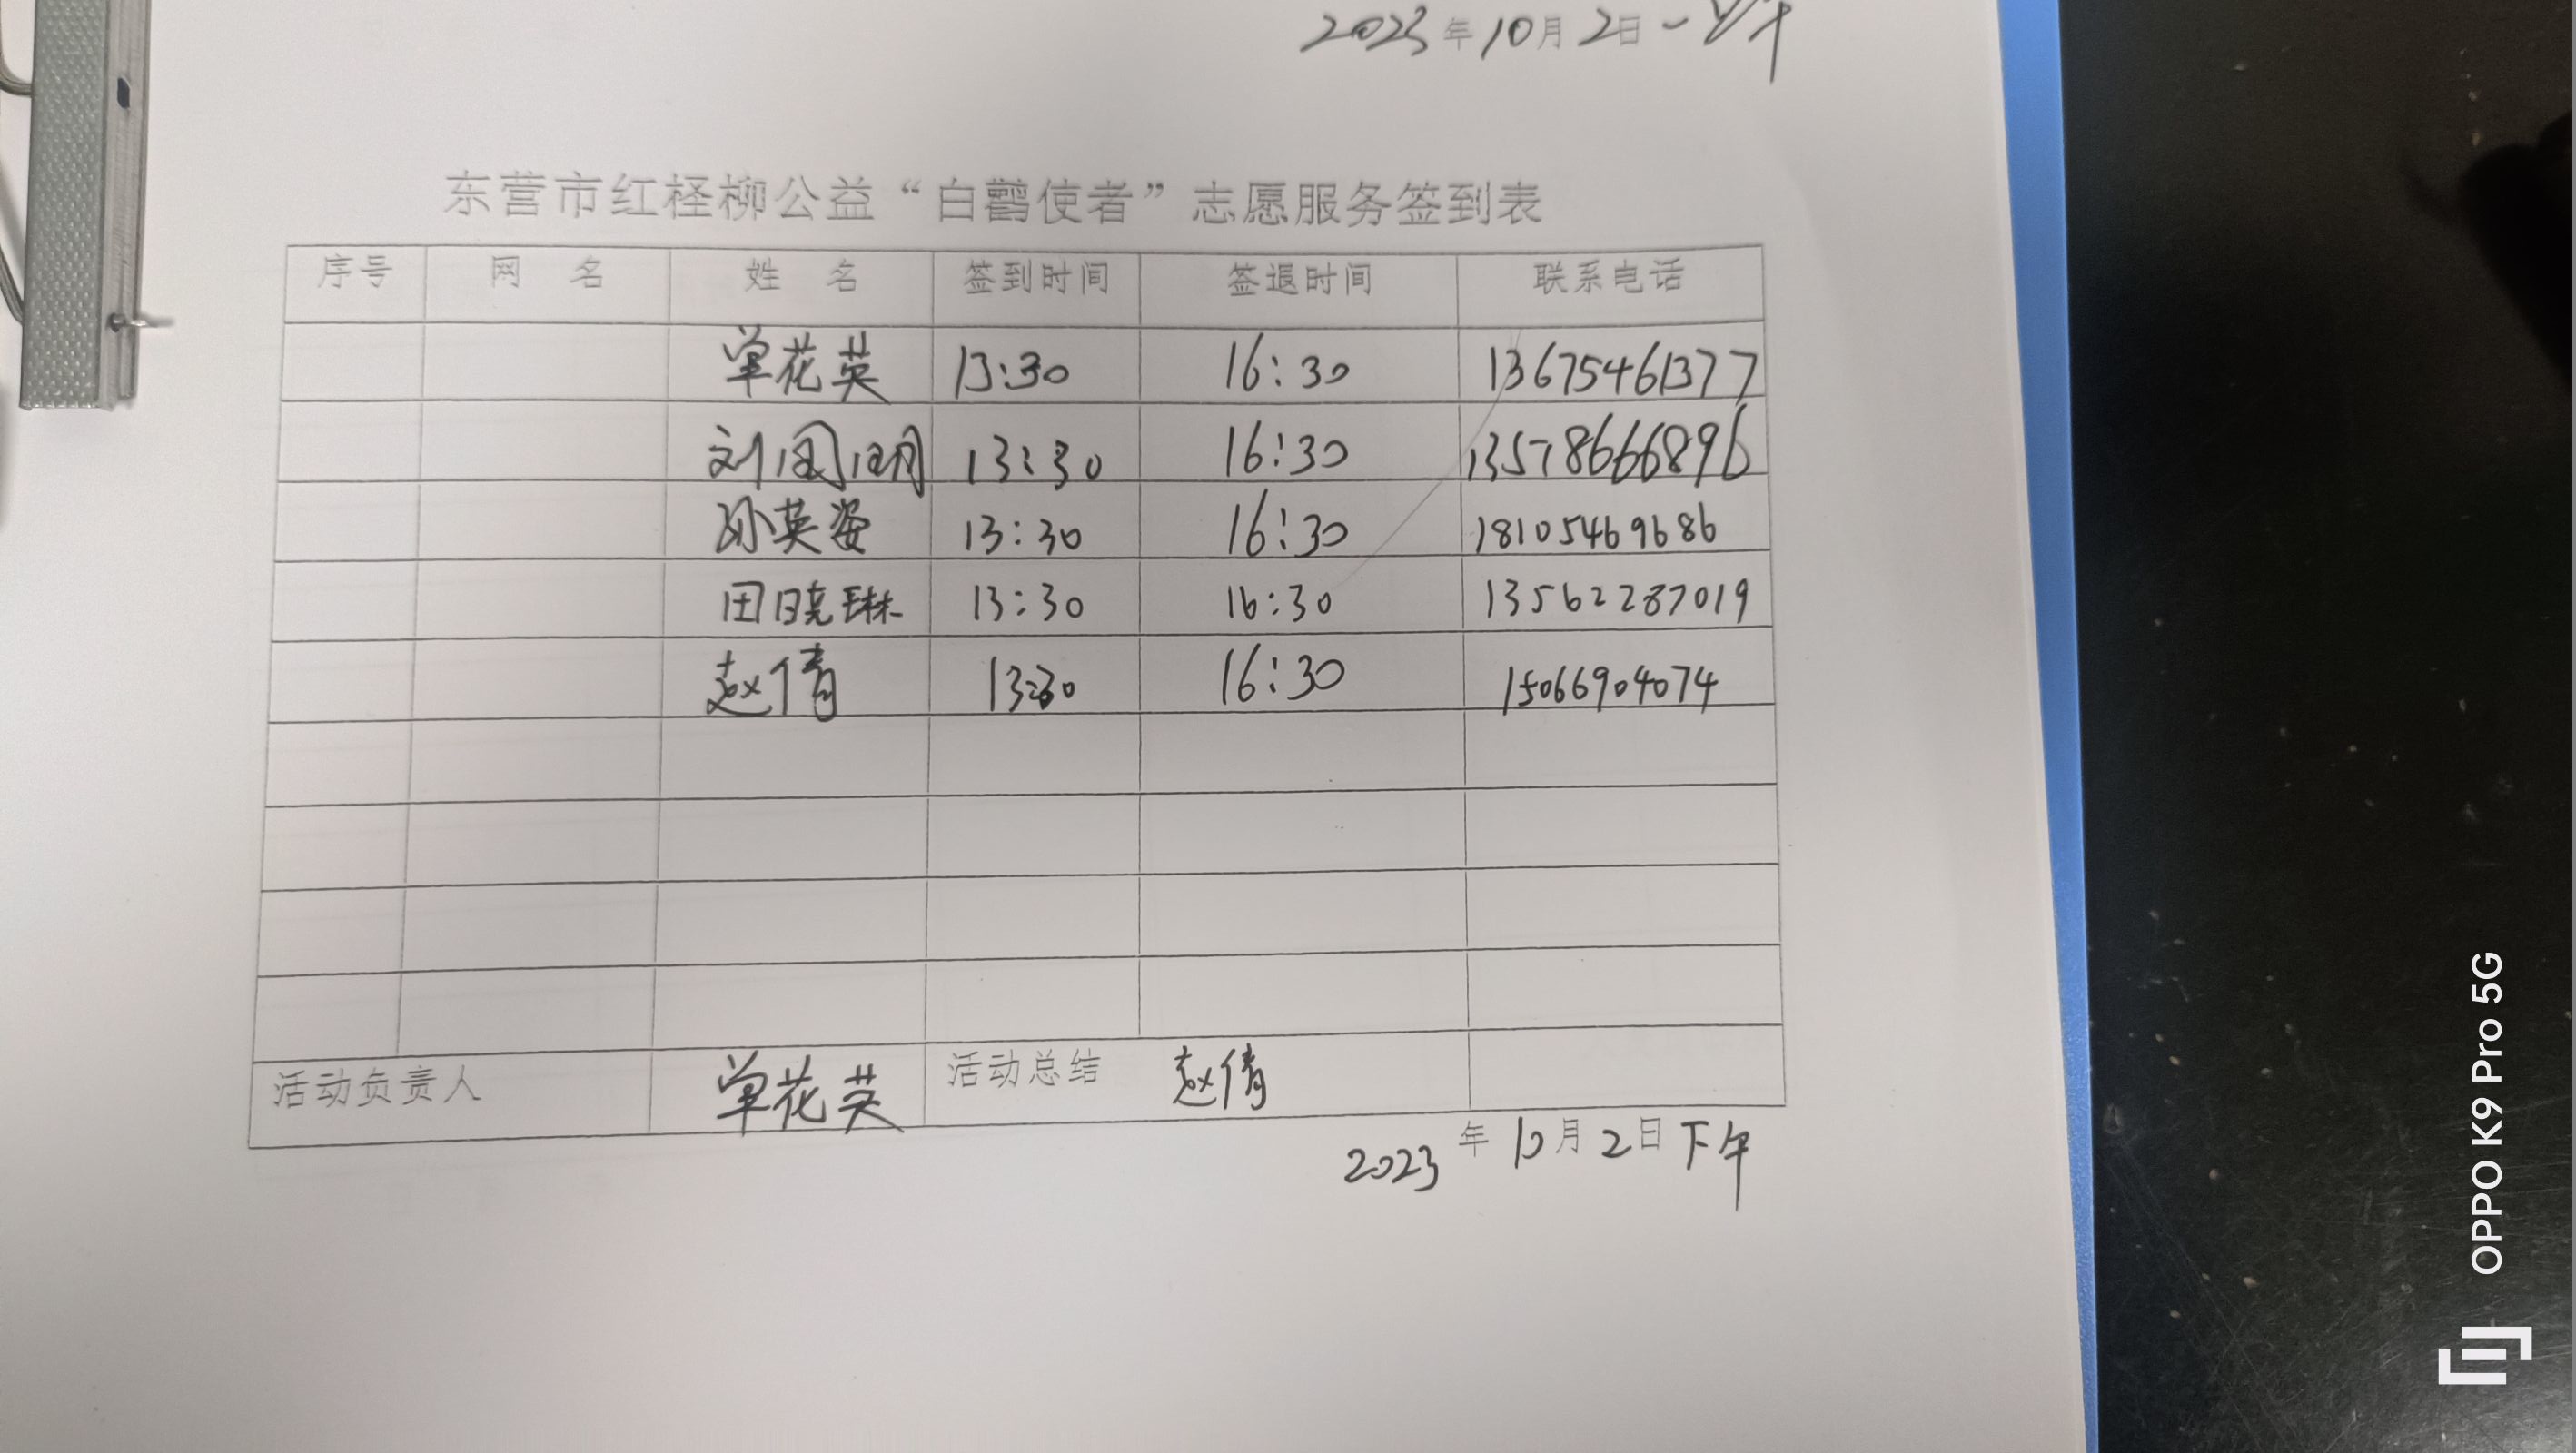 2023年10月2日
东营市红柽柳公益“白鹳使者”志愿服务签到表
序号 网 名 姓 名 签到时间 签退时间 联系电话
单花英 13:30 16:30 13675461377
刘国明 13:30 16:30 13578666896
孙英姿 13:30 16:30 18105469686
田晓琳 13:30 16:30 13562287019
赵倩 13:30 16:30 15066904074
活动负责人 单花英 活动总结 赵倩
2023年10月2日下午
OPPO K9 Pro 5G